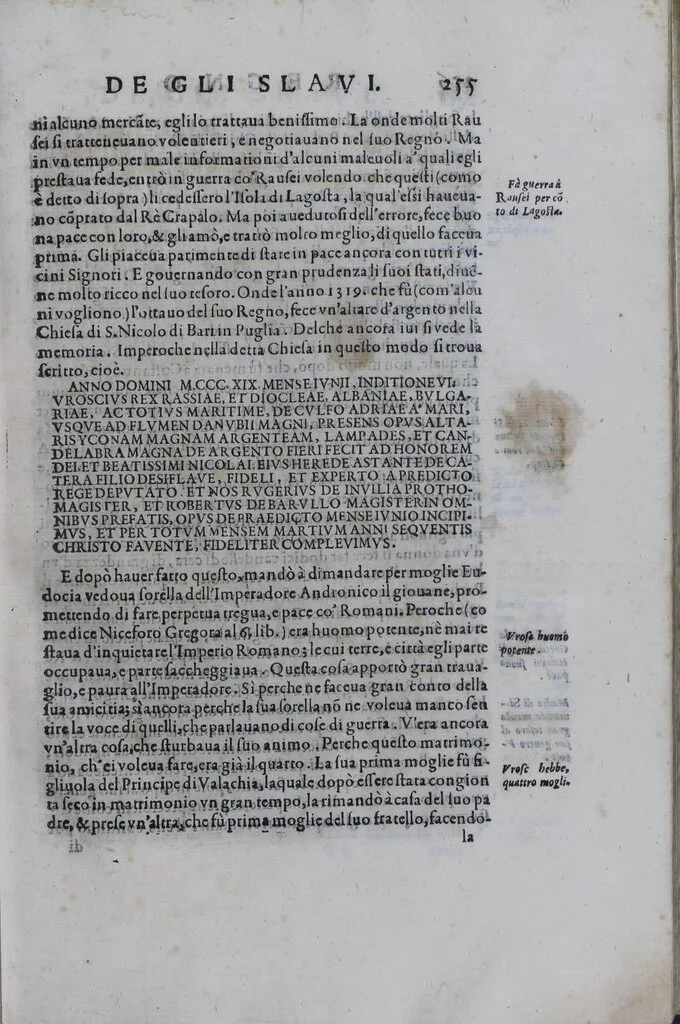 DE GLI SLAVI. 255
ni alcuno mercãte, egli lo trattaua beniſſimo. La onde molti Rau
ſei ſi tratteneuano volentieri, e negotiauano nel ſuo Regno. Ma
in vn tempo per male informationi d'alcuni maleuoli a' quali egli
preſtaua fede, entrò in guerra co' Rauſei volendo che queſti (como
è detto di ſopra) li cedeſſero l'Iſola di Lagoſta, la qual'eſsi haueua-
no cõprato dal Rè Crapalo. Ma poi auedutoſi dell'errore, fece buo
na pace con loro, & gli amò, e trattò molto meglio, di quello faceua
prima. Gli piaceua parimente di ſtare in pace ancora con tutti i vi-
cini Signori. E gouernando con gran prudenza li ſuoi ſtati, diuẽ-
ne molto ricco nel ſuo teſoro. Onde l'anno 1319. che fù (com'alcu
ni vogliono) l'ottauo del ſuo Regno, fece vn'altare d'argento nella
Chieſa di S. Nicolo di Bari in Puglia. Delche ancora iui ſi vede la
memoria. Imperoche nella detta Chieſa in queſto modo ſi troua
ſcritto, cioè.
ANNO DOMINI M.CCC.XIX. MENSE IVNII, INDITIONE VI.
VROSCIVS REX RASSIAE, ET DIOCLEAE, ALBANIAE, BVLGA-
RIAE, AC TOTIVS MARITIME, DE CVLFO ADRIAE A' MARI,
VSQVE AD FLVMEN DANVBII MAGNI, PRESENS OPVS ALTA-
RIS YCONAM MAGNAM ARGENTEAM, LAMPADES, ET CAN-
DELABRA MAGNA DE ARGENTO FIERI FECIT AD HONOREM
DEI, ET BEATISSIMI NICOLAI. EIVS HEREDE ASTANTE DE CA-
TERA FILIO DESISLAVE, FIDELI, ET EXPERTO A PREDICTO
REGE DEPVTATO. ET NOS RVGERIVS DE INVILIA PROTHO-
MAGISTER, ET ROBERTVS DE BARVLLO MAGISTER IN OM-
NIBVS PREFATIS, OPVS DE PRAEDICTO MENSE IVNIO INCIPI-
MVS, ET PER TOTVM MENSEM MARTIVM ANNI SEQVENTIS
CHRISTO FAVENTE, FIDELITER COMPLEVIMVS.
E dopò hauer fatto queſto, mandò à dimandare per moglie Eu-
docia vedoua ſorella dell'Imperadore Andronico il giouane, pro-
mettendo di fare perpetua tregua, e pace co' Romani. Peroche (co
me dice Niceforo Gregora al 6. lib.) era huomo potente, nè mai re
ſtaua d'inquietare l'Imperio Romano; le cui terre, e città egli parte
occupaua, e parte ſaccheggiaua. Queſta coſa apportò gran traua-
glio, e paura all'Imperadore. Sì perche ne faceua gran conto della
ſua amicitia; sì ancora perche la ſua ſorella nõ ne voleua manco ſen
tire la voce di quelli, che parlauano di coſe di guerra. V'era ancora
vn'altra coſa, che ſturbaua il ſuo animo. Perche queſto matrimo-
nio, ch'ei voleua fare, era già il quarto. La ſua prima moglie fù fi-
gliuola del Principe di Valachia, laquale dopò eſſere ſtata congion
ta ſeco in matrimonio vn gran tempo, la rimandò à caſa del ſuo pa
dre, & preſe vn'altra, che fù prima moglie del ſuo fratello, facendo-
la
Fà guerra à
Rauſei per cõ
to di Lagoſta.
Vroſc huomo
potente.
Vroſc hebbe,
quattro mogli.